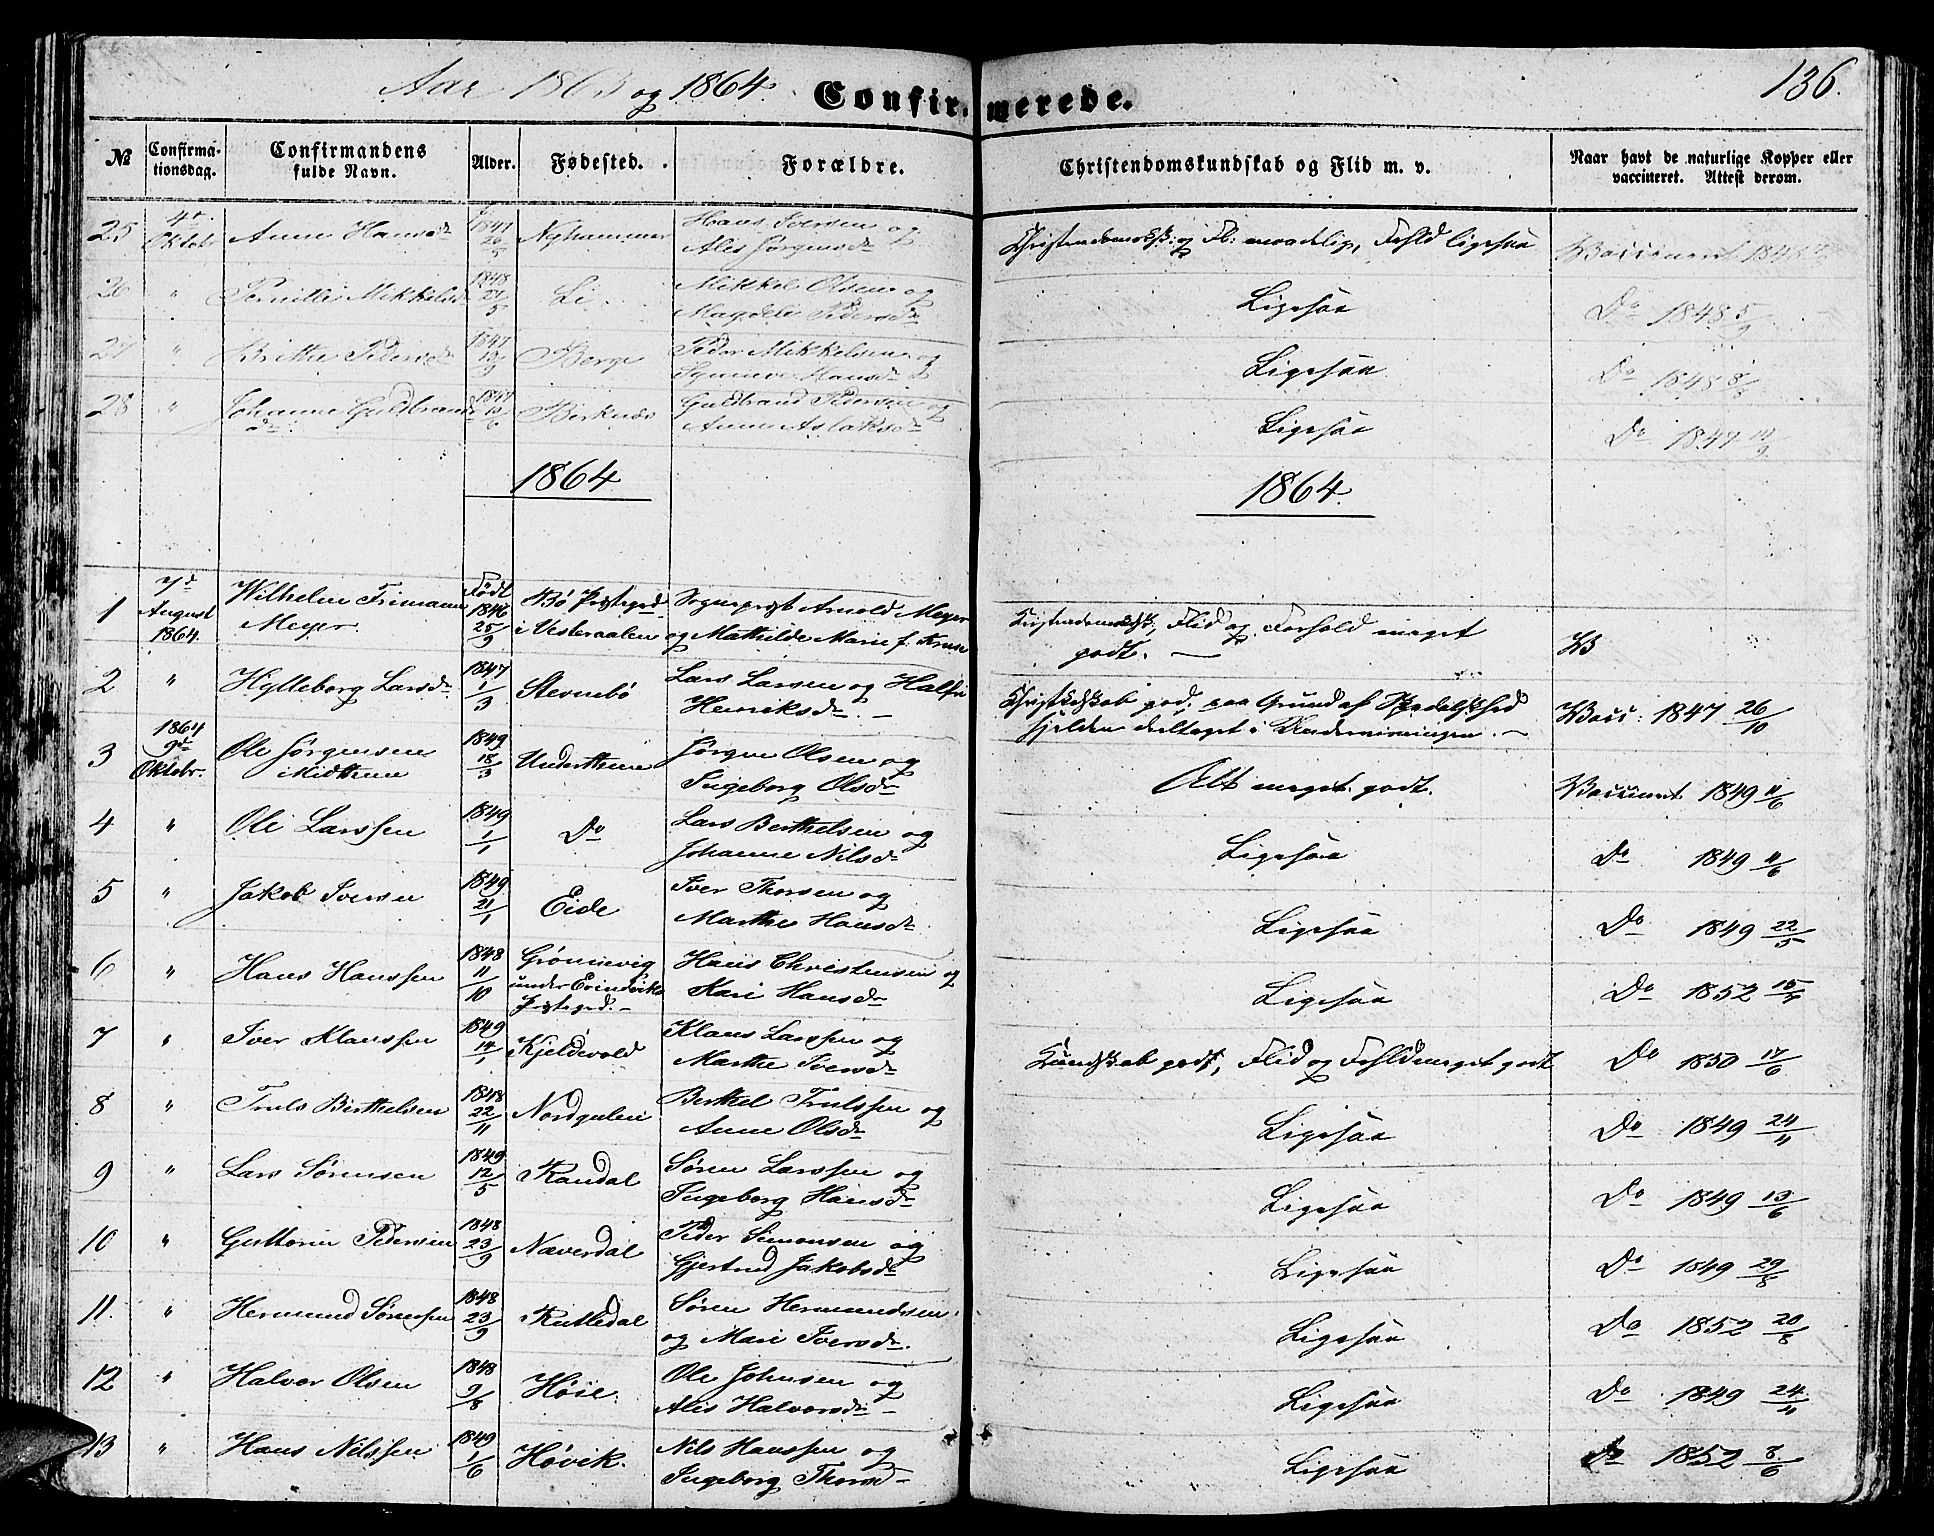 Aar 1863 og 1864. Confirmerede. 136.
№ Confirmationsdag. Confirmandens fulde Navn. Alder. Fødested. Forældre. Christendomskundskab og Flid m. v. Naar havt de naturlige Kopper eller vaccineret. Attest derom.
25 4de Oktobr Anne Hansdr 1847 26/5 Nyhammer Hans Iversen og Alis Jørgensdr Christendomsk: og Fl: maadelig, Forhld ligesaa Vaccineret 1848
26 " Pernille Mikkelsdr 1848 21/5 Li Mikkel Olsen og Magdeli Pedersdr Ligesaa Do 1848 5/9
27 " Brithe Pedersdr 1847 19/9 Berge Peder Mikkelsen og Hansdr Ligesaa Do 1848
28 " Johanne Guldbrandsdr 1847 10/6 Birknes Guldbrand Pedersen og Anne Aslaksdr Ligesaa Do 1847
1864 1864.
1 7de August 1864. Wilhelm Frimann Meyer. Født 1846 25/9 Bø Præstegjd i Vesteraalen Sogneprest Arnold Meyer og Mathilde Marie f. Kruse Kristendomsksk, Flid og Forhold meget godt. —
2 " Hylleborg Larsdr 1847 1/3 Stevnebø Lars Larsen og Halfri Henriksdr. — Christkdskab god, paa Grund af Spedalskhed sjelden deeltaget i Underviisningen. — Vacc: 1847 26/10
3 1864 9de Oktobr. Ole Jørgensen Midttun 1849 18/3 Underthun Jørgen Olsen og Ingeborg Olsdr Alt meget godt. Vaccineret 1849 11/6
4 " Ole Larssen 1849 1/1 Do Lars Berthelsen og Johanne Nilsdr Ligesaa Do 1849 11/6
5 " Jakob Iversen 1849 21/1 Eide Iver Thorsen og Marthe Hansdr Ligesaa Do 1849 22/5
6 " Hans Hanssen 1848 11/10 Grønnevig under Evindviks Præstegjd. — Hans Christensen og Kari Hansdr Ligesaa Do 1852
7 " Iver Klaussen 1849 14/1 Kjeldevold Klaus Larssen og Marthe Iversdr Kundskab godt, Flid og Forhld meget godt Do 1850 17/6
8 " Truls Berthelsen 1848 22/11 Nordgulen Berthel Trulssen og Anne Olsdr Ligesaa Do 1849 24/11
9 " Lars Sørensen 1849 12/5 Randal Søren Larssen og Ingeborg Hansdr Ligesaa Do 1849 13/6
10 " Guttorm Pedersen 1848 23/9 Næverdal Peder Simonsen og Gjertrud Jakobsdr Ligesaa Do 1849 29/8
11. " Hermund Sørenssen 1848 23/9 Rutledal Søren Hermundsen og Mari Iversdr. Ligesaa Do 1852 20/8
12 " Halvor Olsen 1848 9/8 Høie. Ole Johnsen og Alis Halvorsdr — Ligesaa Do 1849 24/11
13 " Hans Nilssen 1849 1/6 Høvik. Nils Hanssen og Ingeborg Thorsdr — Ligesaa Do 1852 8/6